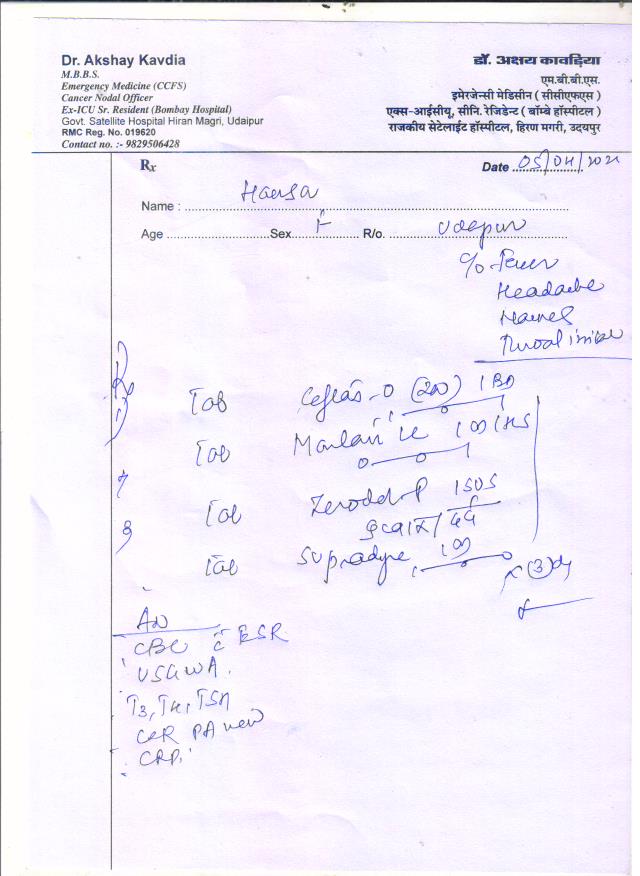 Dr. Akshay Kavdia
M.B.B.S.
Emergency Medicine (CCFS)
Cancer Nodal Officer
Ex-ICU Sr. Resident (Bombay Hospital)
Govt. Satellite Hospital Hiran Magri, Udaipur
RMC Reg. No. 019620
Contact no. :- 9829506428
डॉ. अक्षय कावड़िया
एम.बी.बी.एस.
इमेरजेन्सी मेडिसीन ( सीसीएफएस )
एक्स-आईसीयू, सीनि. रेजिडेन्ट ( बॉम्बे हॉस्पीटल )
राजकीय सेटेलाईट हॉस्पीटल, हिरण मगरी, उदयपुर
Rx
Date 05/04/2021
Name : Hansa
Age Sex F R/o. Udaipur
c/o Fever
Headache
Tab (200) 1 BD
Tab LC 1 OD/HS
Tab Zerodol-P 1 SOS
Tab Supradyn 1 OD
x (3) dy
CBC c̄ ESR
USG WA.
T3, T4, TSH
CXR PA view
CRP.